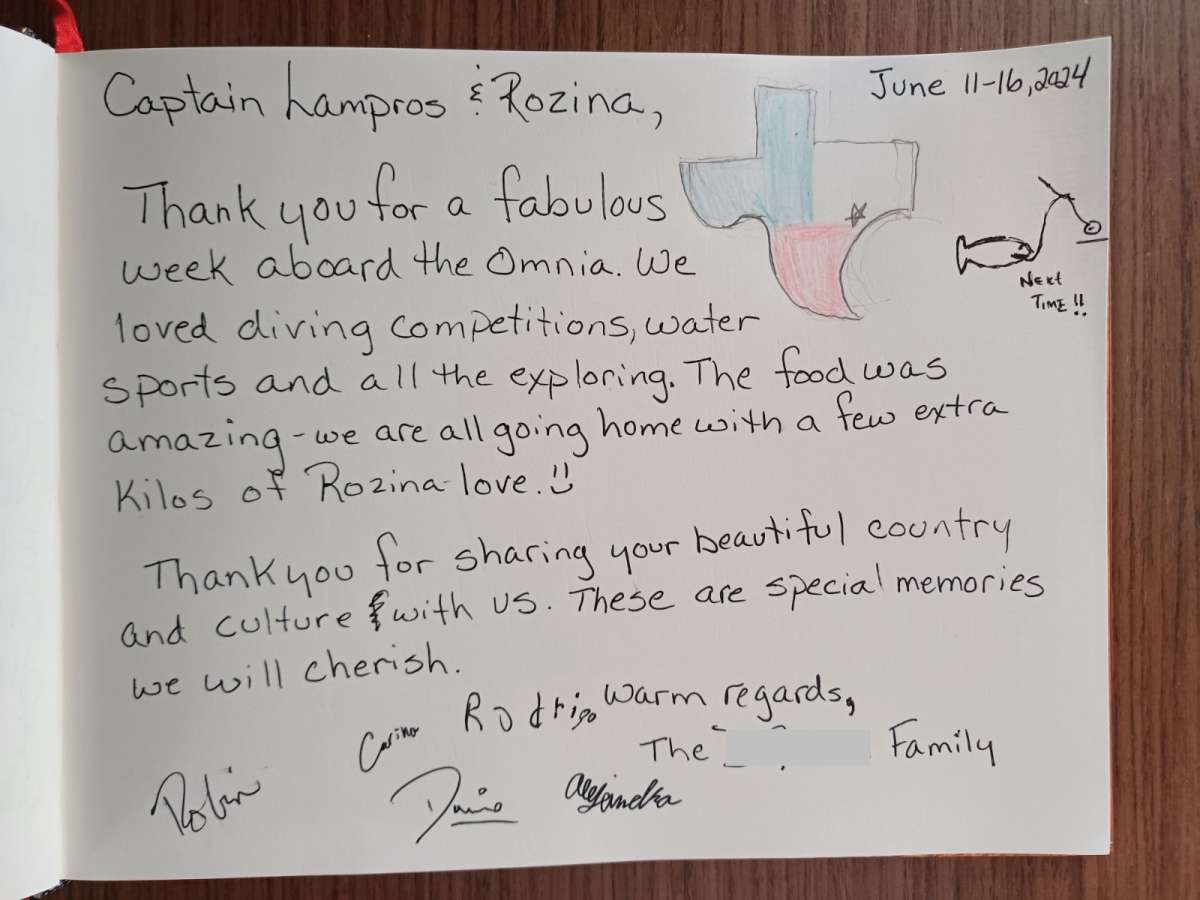 Captain Lampros & Rozina,
June 11-16, 2024
Thank you for a fabulous
week aboard the Omnia. We
loved diving competitions, water
sports and all the exploring. The food was
amazing - we are all going home with a few extra
Kilos of Rozina love. :)
NEXT
TIME!!
Thank you for sharing your beautiful country
and culture with us. These are special memories
we will cherish.
Warm regards,
The Family
Rodrigo
Robin
Alejandra